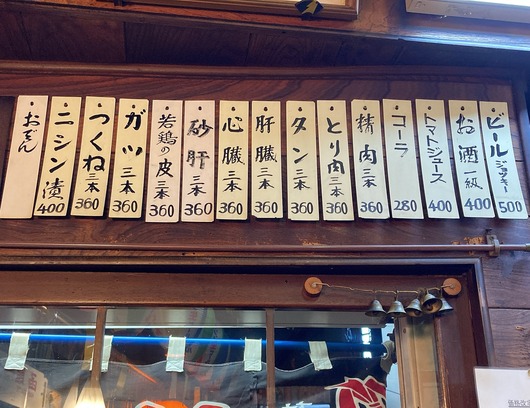 ビールジョッキー 500
お酒 一級 400
トマトジュース 400
コーラ 280
精肉 三本 360
とり肉 三本 360
タン 三本 360
肝臓 三本 360
心臓 三本 360
砂肝 三本 360
若鶏の皮 三本 360
ガツ 三本 360
つくね 三本 360
ニシン漬 400
おでん